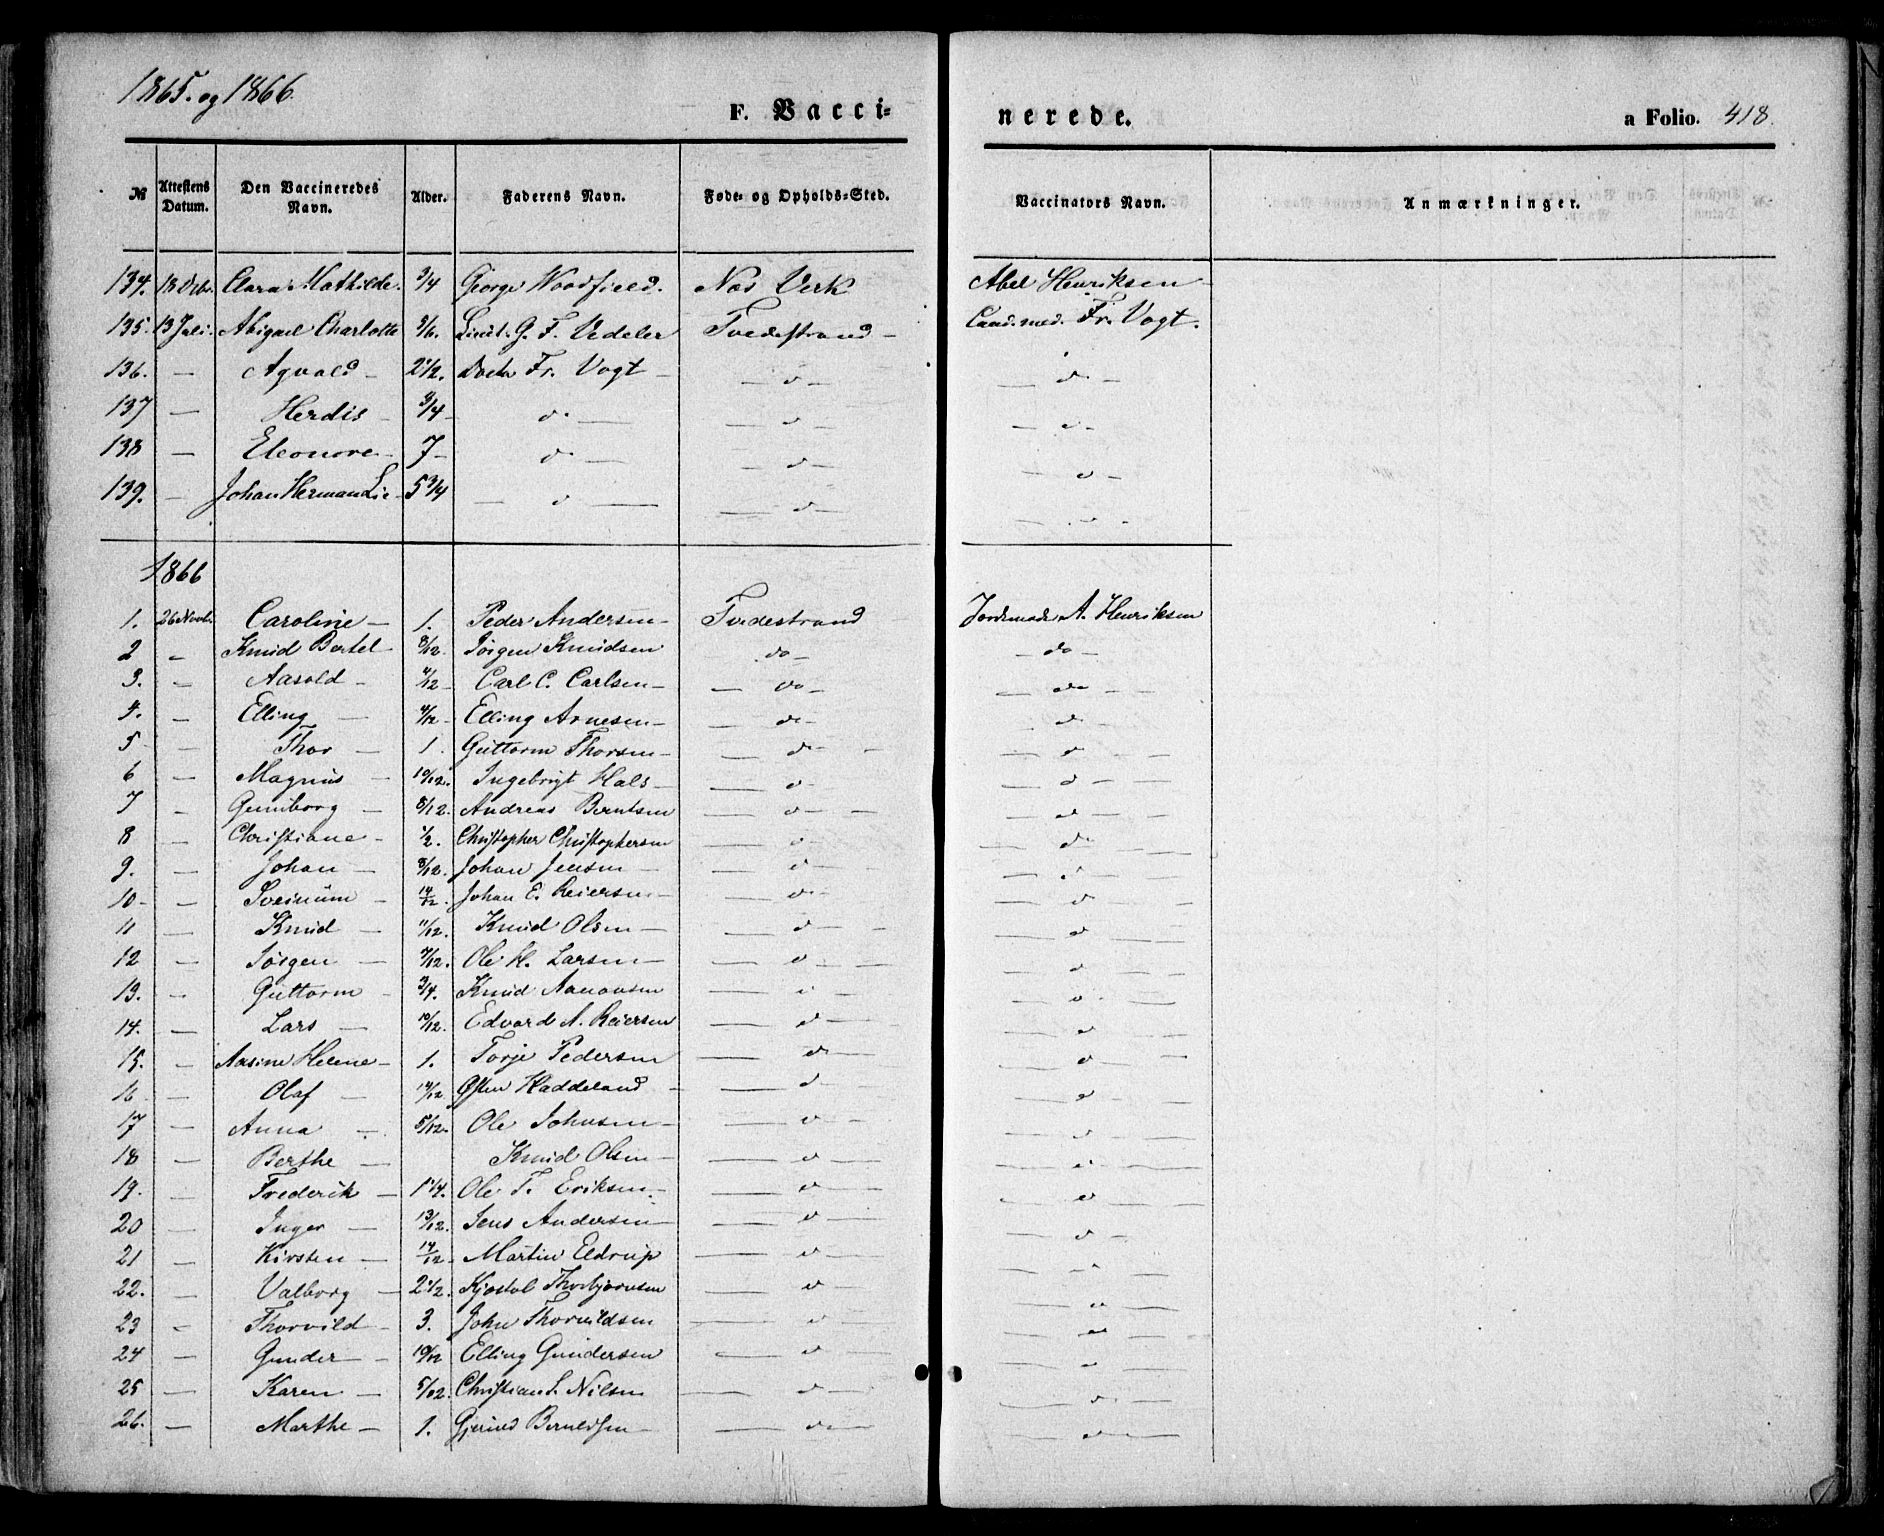 1865. og 1866.
F. Vacci=
nerede.
a Folio. 418.
№ Attestens Datum. Den Vaccineredes Navn. Alder. Faderens Navn. Føde- og Opholds-Sted. Vaccinators Navn. Anmærkninger.
134. 18 Debr. Clara Mathilde. 3/4 George Woodfield. Næs Verk Abel Henriksen
135. 13 Juli. Abigael Charlotte Lieut. G. F. Vedeler Tvedestrand - Cand. med. Fr. Vogt.
136. — Aqvald - 2 1/2. Docter Fr. Vogt - — d — — d -
137 — Herdis - 3/4 - d — — d — — d -
138 — Eleonore - 7 - d — — d — — d -
139. — Johan Herman Lie - 5 3/4 — d — — d — — d -
1866
1. 26 Novb. Caroline — 1. Peder Andersen - Tvedestrand Jordemoder A. Henriksen
2 - Knud Bertel - 8/12. Jørgen Knudsen do - — do -
3. - Aasold - 4/12 - Carl C. Carlsen - — do - — do -
4. - Elling — 4/12 - Elling Arnesen - — do - — do -
5 - Thor — 1. Guttorm Thorsen - — do - — d —
6 — Magnus - 10/12. Ingebrigt Hals - — d — — d —
7 - Gunborg — 8/12. Andreas Berntsen — d — — d —
8 — Christiane - 1/2. Christopher Christophersen — d — — d —
9. — Johan — 8/12. Johan Jensen — — d — — d —
10 - — Sveinum — 14/12 - Johan E. Reiersen - — d — — d —
11 — Knud — 11/12. Knud Olsen — — d — — d —
12 — Jørgen — 7/12. Ole H. Larsen — — d — — d —
13. - Guttorm - 3/4. Knud Aanonsen — d - — d —
14. — Lars — 10/12. Edvard A. Reiersen — d — — d —
15. — Aasine Helene - 1. Torje Pedersen — d — — d —
16 — Olaf — 14/12 Østen Haddeland - — d — — d —
17 — Anna — 5/12. Ole Johnsen - — d — — d —
18 — Berthe — Knud Olsen - — d — — d —
19. — Frederik — 1 1/4. Ole T. Eriksen - — d — — d —
20 — Inger — 13/12. Jens Andersen - — d — — d —
21 — Kirsten — 14/12 - Martin Eldrup — d — — d —
22. — Valborg — 2 1/2. Kjøstol Thorbjørnsen — d — — d —
23 - Thorvild - 3. John Thorvildsen — d — — d —
24 — Gunder — 10/12 Elling Gundersen — d — — d —
25 — Karen — 5/12. Christian L. Nilsen — d — — d —
26. — Marthe — 1. — d — — d —